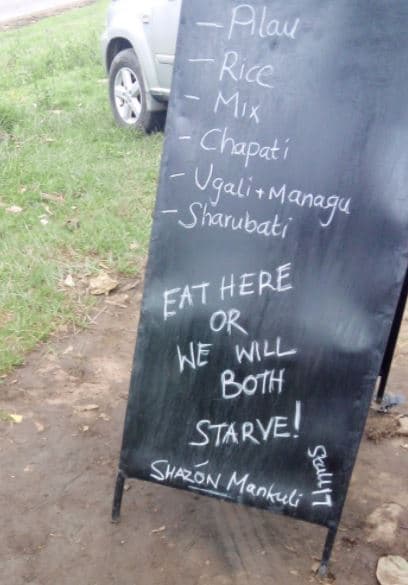 – Pilau
– Rice
– Mix
– Chapati
– Ugali + Managu
– Sharubati
EAT HERE
OR
WE WILL
BOTH
STARVE!
SHAZÓN Mankuli